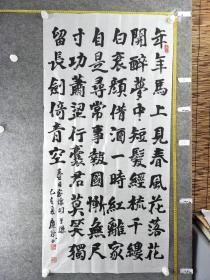 年年馬上見春風花落花
開醉夢中短髮經梳千縷
白衰顏借酒一時紅離家
自是尋常事報國慚無尺
寸功蕭行囊君莫笑獨
留長劍倚青空
春日客懷